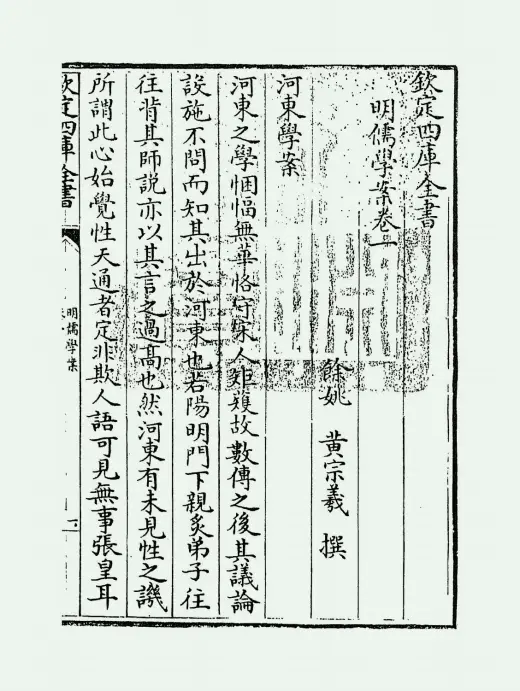 欽定四庫全書
明儒學案卷一
餘姚 黃宗羲 撰
河東學案
河東之學悃愊無華恪守宋人矩矱故數傳之後其議論
設施不問而知其出於河東也若陽明門下親炙弟子往
往背其師說亦以其言之過高也然河東有未見性之譏
所謂此心始覺性天通者定非欺人語可見無事張皇耳
欽定四庫全書
明儒學案